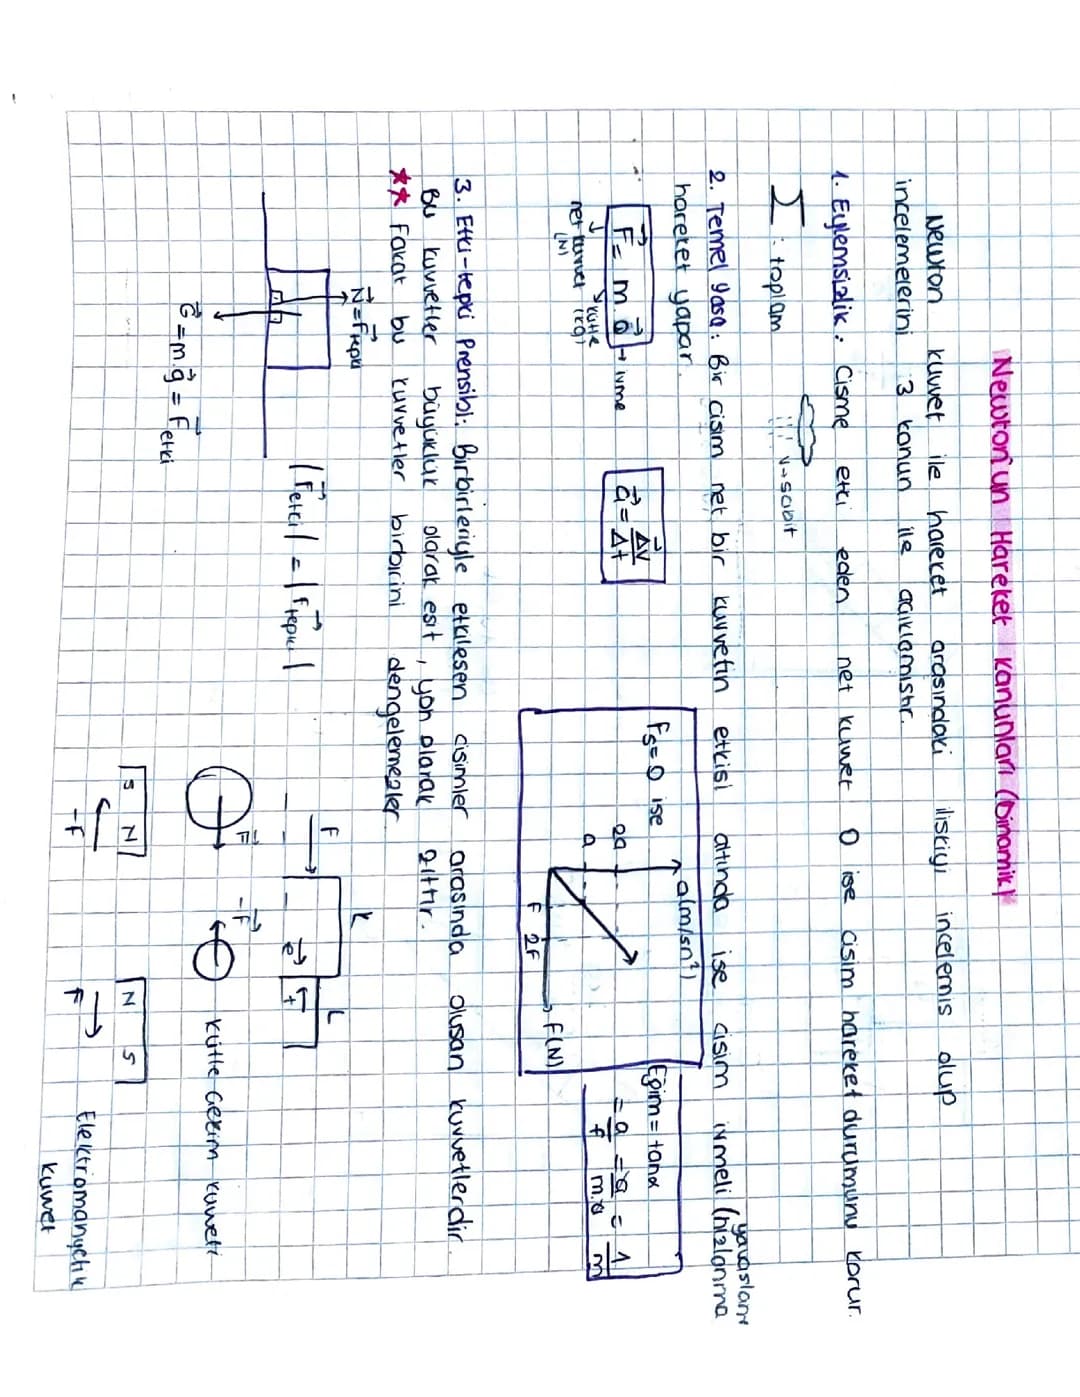 Newton'un Hareket Kanunları (Dinamik)
Newton kuvvet ile hareket arasındaki ilişkiyi incelemiş olup
incelemelerini 3 kanun ile açıklamıştır.
1. Eylemsizlik: Cisme etki eden net kuvvet 0 ise cisim hareket durumunu korur.
Σ : toplam
v→sabit
yavaşlama
2. Temel Yasa: Bir cisim net bir kuvvetin etkisi altında ise cisim ivmeli (hızlanma
hareket yapar.
F = m.a → ivme
kütle
(kg)
net kuvvet
(N)
a = Δv/Δt
Fs=0 ise
a(m/sn²)
2a
a
F 2F
F(N)
Eğim = tanα
= a/F = a/m.a = 1/m
3. Etki-tepki Prensibi: Birbirleriyle etkileşen cisimler arasında oluşan kuvvetlerdir.
Bu kuvvetler büyüklük olarak eşit, yön olarak zıttır.
** Fakat bu kuvvetler birbirini dengelemezler.
N=Ftepki
G=m.g=Fetki
|Fetki| = |Ftepki|
F
K
L
F
-F
Kütle Çekim Kuvveti
S N
N S
-F
F
Elektromanyetik
Kuvvet